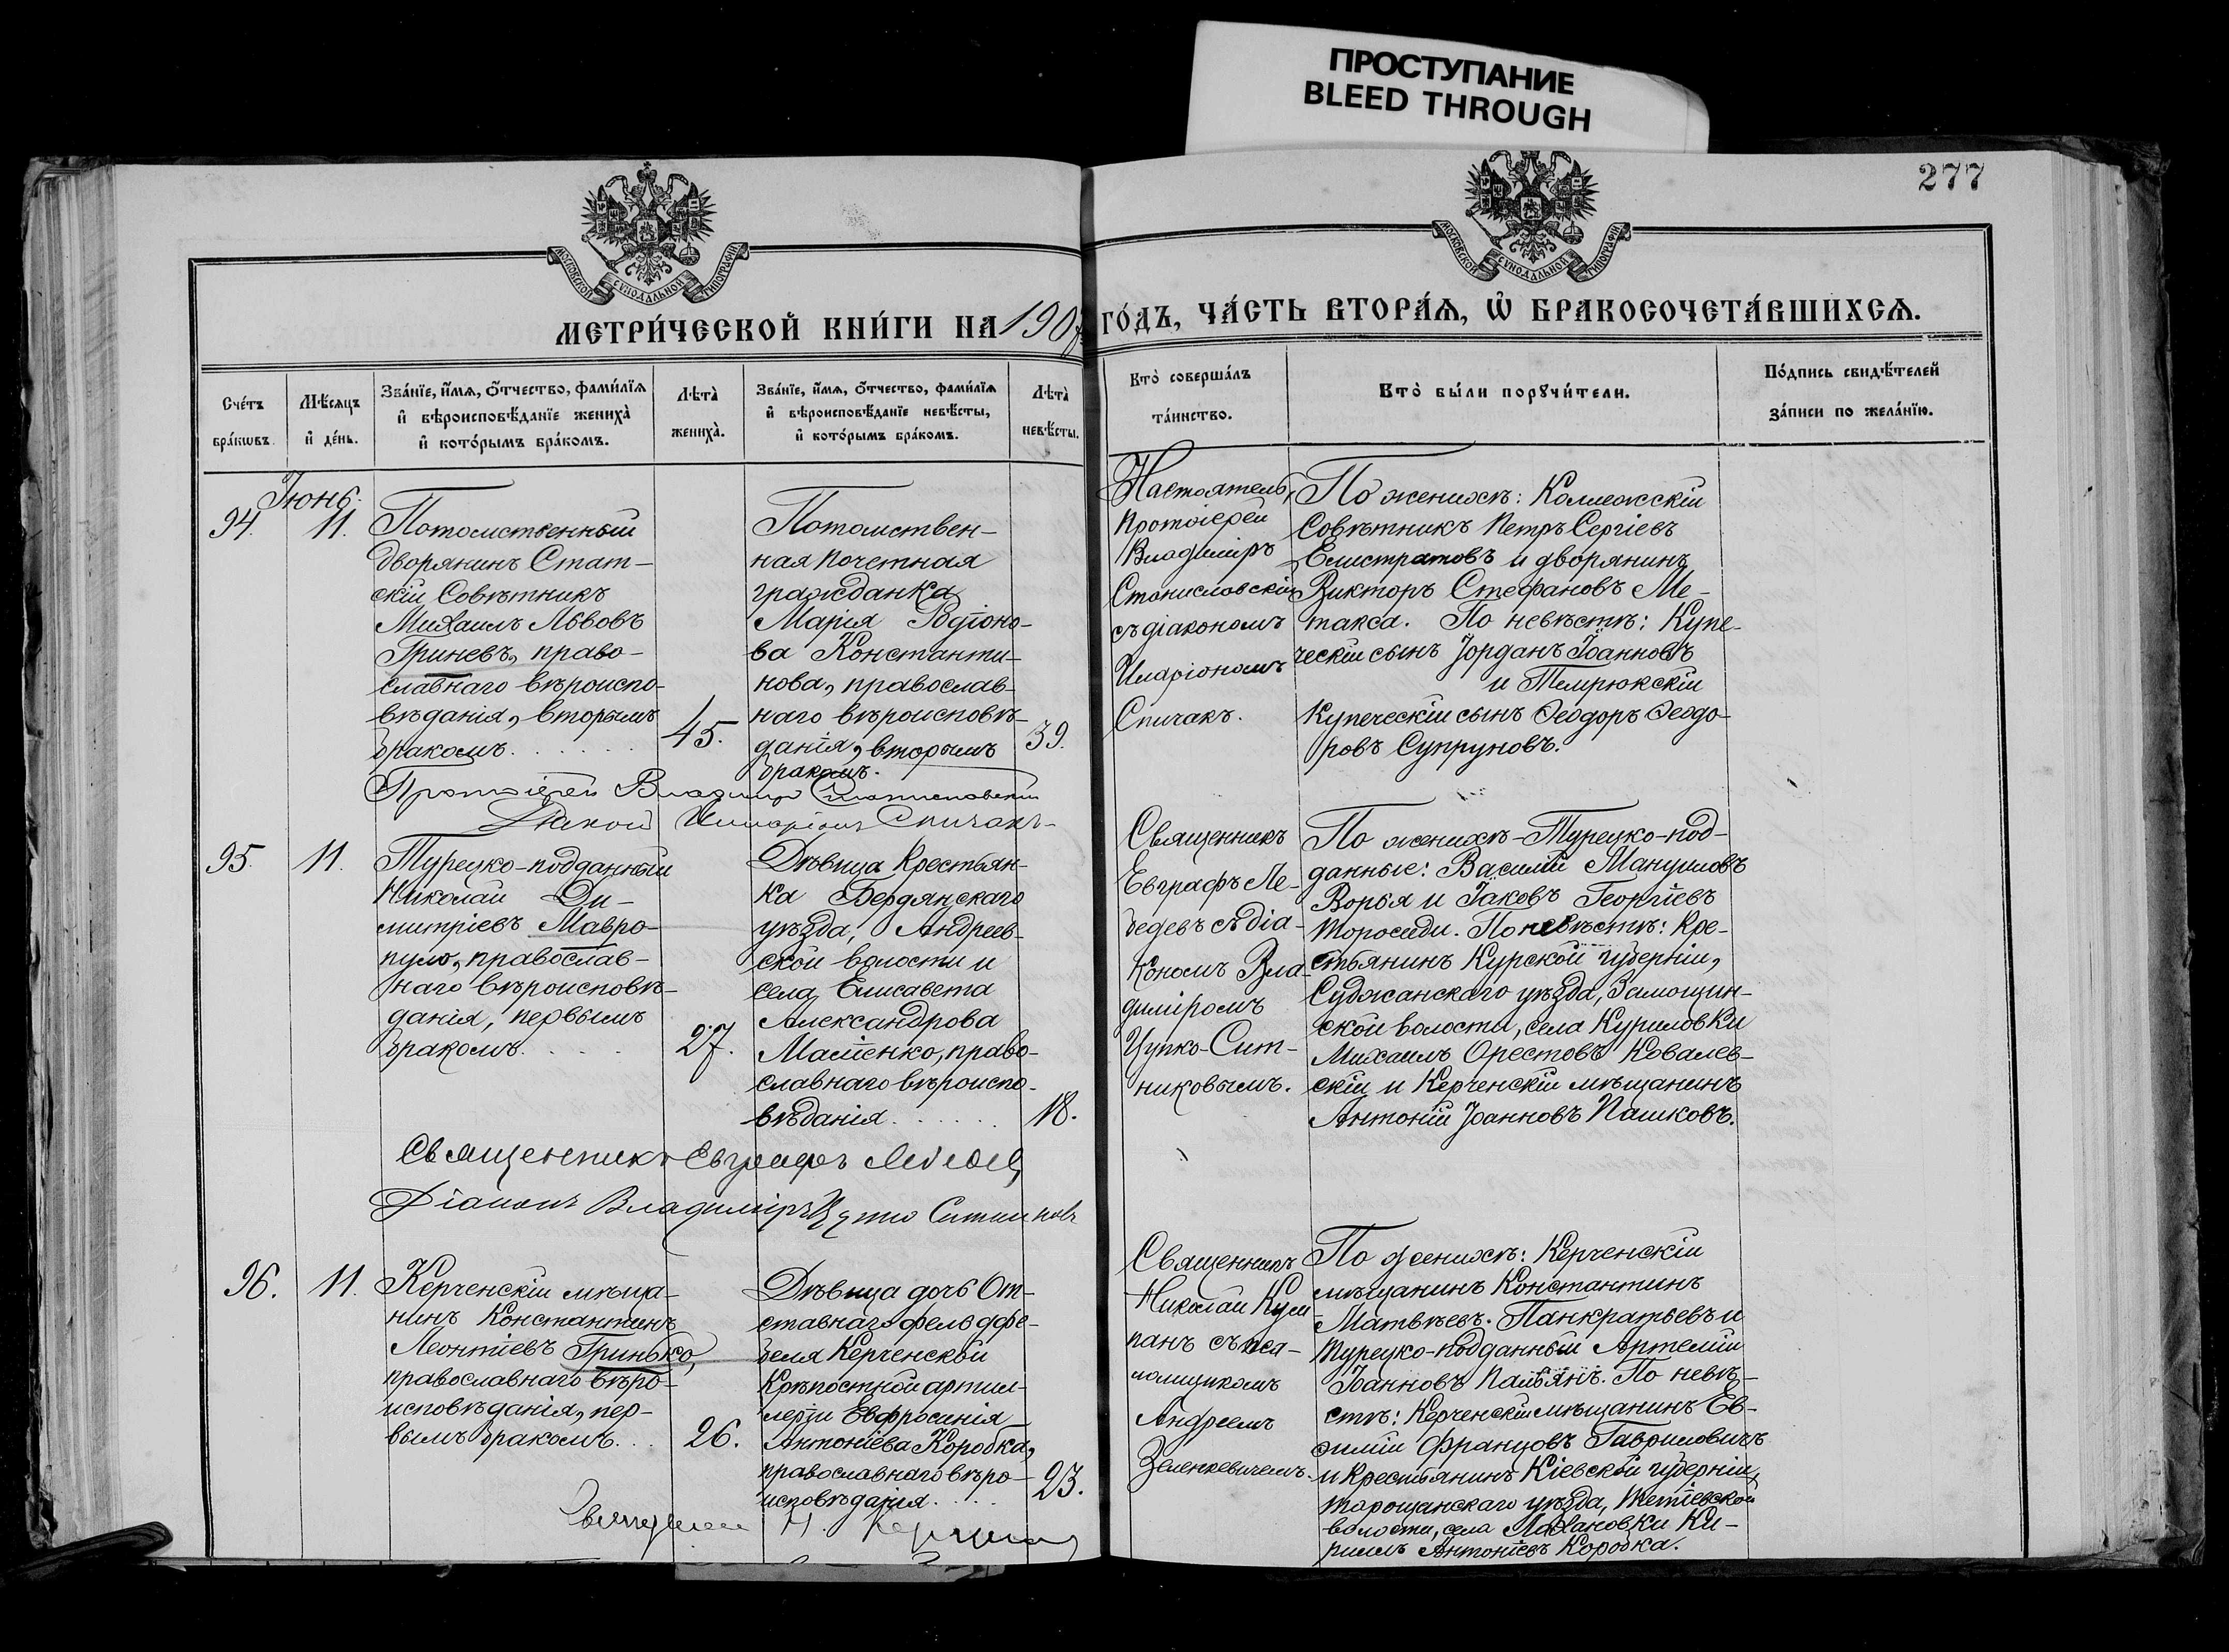 ПРОСТУПАНИЕ
BLEED THROUGH
277
МОСКОВСКОЙ СѴНОДАЛЬНОЙ ТИПОГРАФІИ
МОСКОВСКОЙ СѴНОДАЛЬНОЙ ТИПОГРАФІИ
МЕТРИ́ЧЕСКОЙ КНИ́ГИ НА 190
ГО́ДЪ, ЧА́СТЬ ВТОРА́Ѧ, Ѡ҆ БРАКОСОЧЕТА́ВШИХСѦ.
Сче́тъ
бра́кѡвъ.
Мѣ́сѧцъ
и҆ де́нь.
Зва́нїе, и҆́мѧ, ѻ҆́тчество, фами́лїѧ
и҆ вѣроисповѣ́данїе жениха̀
и҆ кото́рымъ бра́комъ.
Лѣта̀
жениха̀.
Зва́нїе, и҆́мѧ, ѻ҆́тчество, фами́лїѧ
и҆ вѣроисповѣ́данїе невѣ́сты,
и҆ кото́рымъ бра́комъ.
Лѣта̀
невѣ́сты.
Кто̀ соверша́лъ
та́инство.
Кто̀ бы́ли порꙋчи́тели.
По́дпись свидѣ́телей
за́писи по жела́нїю.
Іюнь.
94.
11.
Потомственный
дворянинъ Стат-
скій Совѣтникъ
Михаилъ Львовъ
Гриневъ, право-
славнаго вѣроиспо-
вѣданія, вторымъ
бракомъ.
45.
Потомствен-
ная почетная
гражданка
Марія Родіоно-
ва Константи-
нова, православ-
наго вѣроисповѣ-
данія, вторымъ
бракомъ.
39.
Настоятель,
Протоіерей
Владиміръ
Станиславскій
съ діакономъ
Иларіономъ
Спичакъ.
По женихѣ: Коллежскій
Совѣтникъ Петръ Сергіевъ
Елистратовъ и дворянинъ
Викторъ Стефановъ Ме-
такса. По невѣстѣ: Купе-
ческій сынъ Іорданъ Іоанновъ
и Темрюкскій
Купеческій сынъ Ѳеодоръ Ѳеодо-
ровъ Супруновъ.
Протоіерей Владиміръ Станиславскій
Діаконъ Иларіонъ Спичакъ
95.
11.
Турецко-подданный
Николай Ди-
митріевъ Мавро-
пуло, православ-
наго вѣроисповѣ-
данія, первымъ
бракомъ.
27.
Дѣвица Крестьян-
ка Бердянскаго
уѣзда, Андреев-
ской волости и
села Елисавета
Александрова
православнаго вѣроиспо-
вѣданія
18.
Священникъ
Евграфъ Ле-
бедевъ съ діа-
кономъ Вла-
диміромъ
Цупко-Сит-
никовымъ.
По женихѣ-Турецко-под-
данные: Василій Мануиловъ
Ворья и Іаковъ Георгіевъ
Торосиди. По невѣстѣ: Кре-
стьянинъ Курской губерніи,
Суджанскаго уѣзда, Замощин-
ской волости, села Куриловки
Михаилъ Орестовъ Ковалев-
скій и Керченскій мѣщанинъ
Антоній Іоанновъ Пашковъ.
Священникъ Евграфъ Лебедев
Діаконъ Владиміръ Цупко Ситниковъ
96.
11.
Керченскій мѣща-
нинъ Константинъ
Леонтіевъ Гринько,
православнаго вѣро-
исповѣданія, пер-
вымъ бракомъ.
26.
Дѣвица дочь От-
ставнаго фельдфе-
беля Керченской
Крѣпостной артил-
леріи Евфросинія
Антоніева Коробка,
православнаго вѣро-
исповѣданія.
23.
Священникъ
Николай
съ пса-
ломщикомъ
Андреемъ
Зеленкевичемъ.
По женихѣ: Керченскій
мѣщанинъ Константинъ
Матвѣевъ Панкратьевъ и
турецко-подданный Артемій
Іоанновъ Пальянъ. По невѣ-
стѣ: Керченскій мѣщанинъ Ев-
фимій Францовъ Гавриловичъ
и Крестьянинъ Кіевской губерніи,
Таращанскаго уѣзда, Тетіевской
волости, села Ки-
риллъ Антоніевъ Коробка.
Священникъ Н.